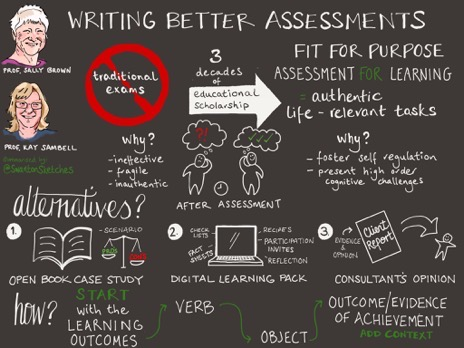 WRITING BETTER ASSESSMENTS
PROF. SALLY BROWN
PROF. KAY SAMBELL
@SwattonSketches
traditional
exams
why?
- ineffective
- fragile
- inauthentic
3
decades
of
educational
scholarship
?!
AFTER ASSESSMENT
FIT FOR PURPOSE
ASSESSMENT FOR LEARNING
= authentic
life - relevant tasks
why?
- foster self regulation
- present high order
cognitive challenges
alternatives?
1.
- SCENARIO
PROS
CONS
OPEN BOOK CASE STUDY
2.
CHECK
LISTS
FACT
SHEETS
- RECIPES
- PARTICIPATION
INVITES
- REFLECTION
DIGITAL LEARNING PACK
3.
EVIDENCE
& OPINION
Client
Report
CONSULTANT'S OPINION
how?
START
with the
LEARNING
OUTCOMES
VERB
OBJECT
OUTCOME/EVIDENCE
OF ACHIEVEMENT
ADD CONTEXT